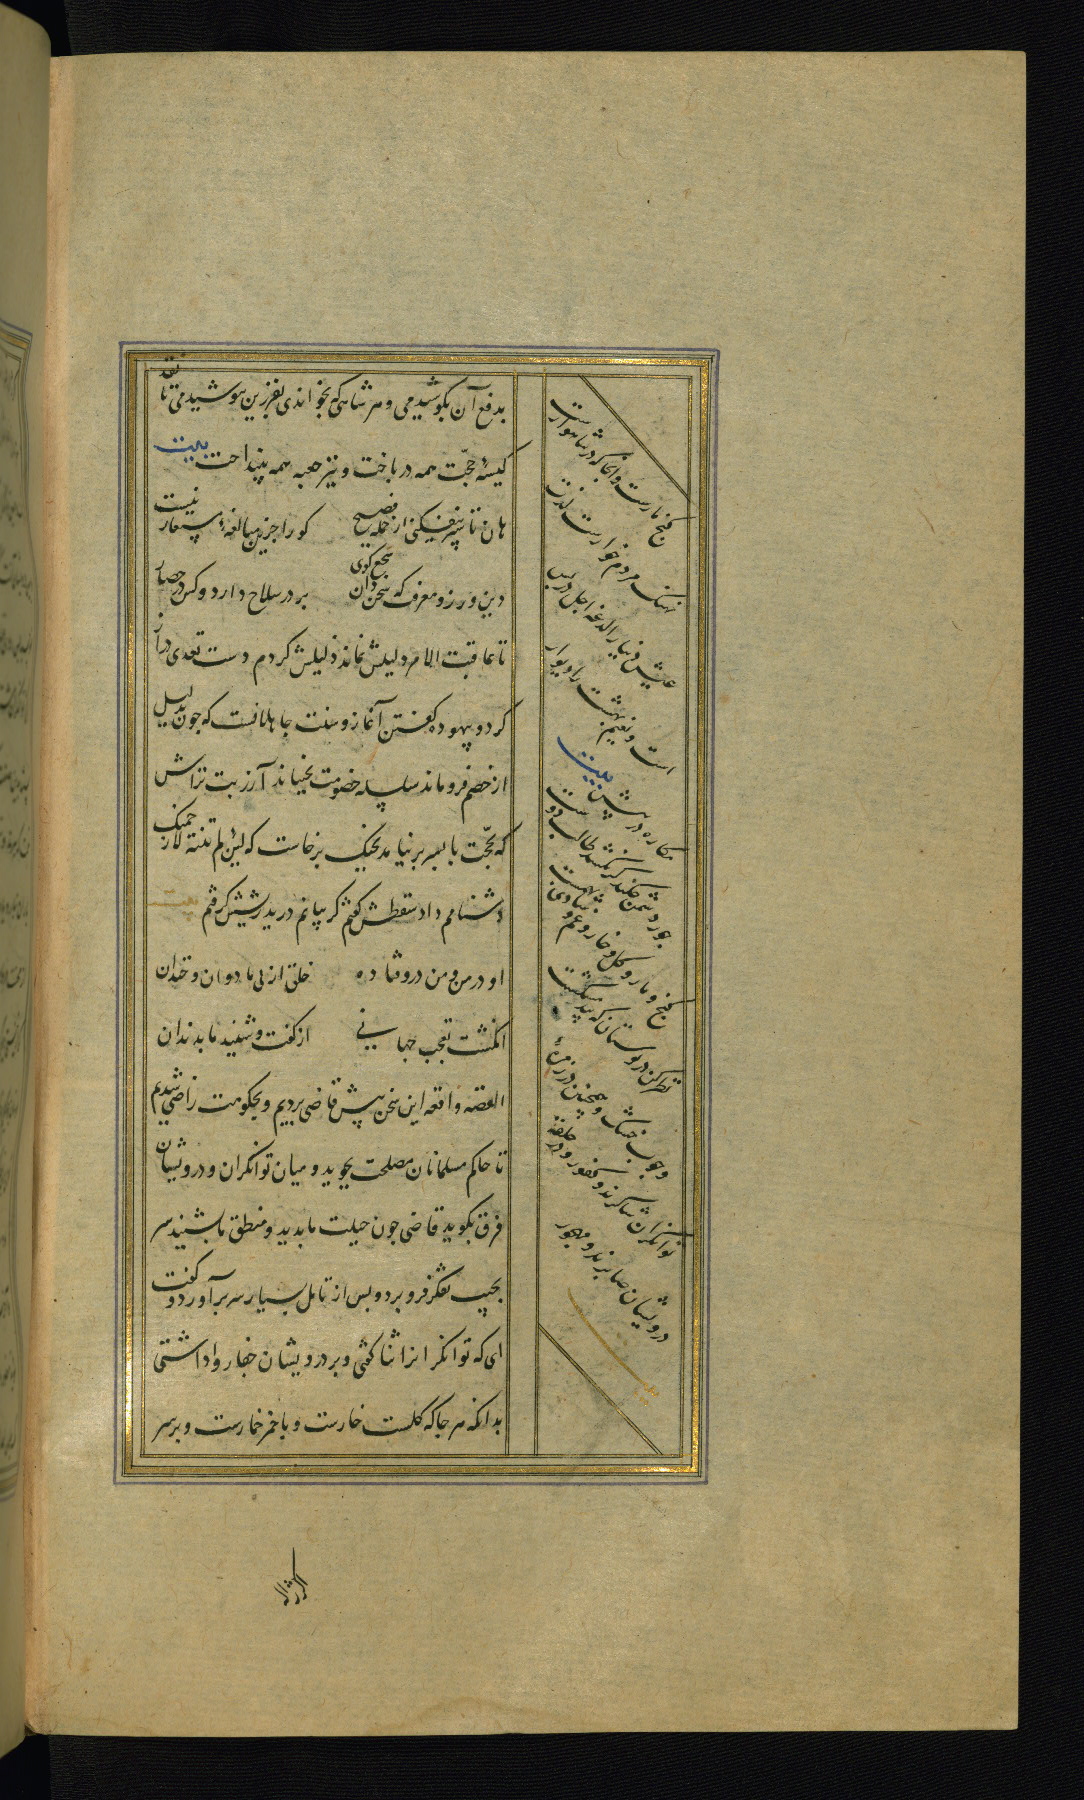 بدفع آن بکوشیدمی و هر شاهی که بخواندی بفرزین بپوشیدمی تا نقد
کیسهٔ حجّت همه در باخت و تیر جعبه همه بینداخت بیت
هان تا سپر نیفکنی از حملهٔ فصیح کو را جزین مبالغهٔ مستعار نیست
دین ورز و معرفت که سخن‌دان سجع‌گوی بر در سلاح دارد و کس در حصار
تا عاقبت الامر دلیلش نماند ذلیلش کردم دست تعدی دراز
کرد و بیهوده گفتن آغاز و سنت جاهلانست که چون بدلیل
از خصم فرو مانند سلسله خصومت بجنبانند آزر بت تراش
که بحجّت با پسر بر نیامد بجنگ برخاست که لئن لم تنته لارجمنک
دشنامم داد سقطش گفتم گریبانم درید ریشش گرفتم بیت
او در من و من درو فتاده خلق از پی ما دوان و خندان
انگشت تعجب جهانی از گفت و شنید ما بدندان
القصه واقعه این سخن پیش قاضی بردیم و بحکومت راضی شدیم
تا حاکم مسلمانان مصلحت بجوید و میان توانگران و درویشان
فرق بگوید قاضی چون حیلت ما بدید و منطق ما بشنید سر
بجیب تفکر فرو برد و پس از تامل بسیار سر برآورد و گفت
ای که توانگرانرا ثنا گفتی و بر درویشان جفا روا داشتی
بدانکه هر جا که گلست خارست و با خمر خمارست و بر سر
گنج مارست و آنجا که در شاهوارست
نهنگ مردم خوارست لذت
عیش دنیا را لدغهٔ اجل در پس
است و نعیم بهشت را دیوار
مکاره در پیش بیت
جور دشمن چکند گر نکشد طالب دوست
گنج و مار و گل و خار و غم و شادی بهمست
نظر نکنی در بوستان که بید مشکست
و چوب خشک و همچنین در زمرهٔ
توانگران شاکرند و کفور و در حلقهٔ
درویشان صابرند و ضجور